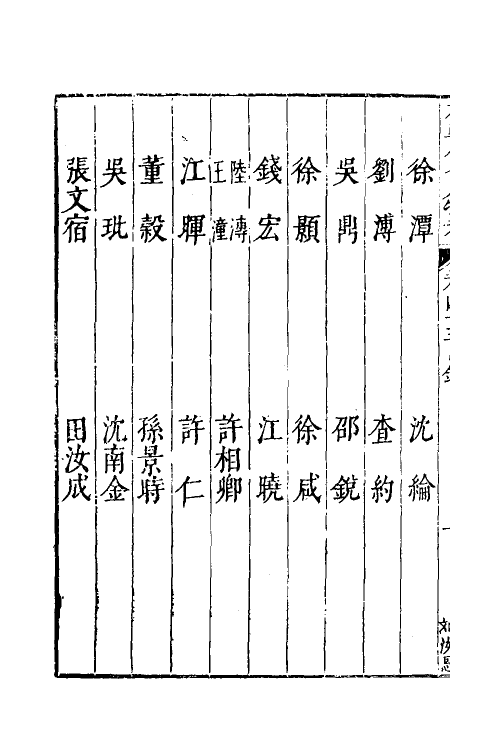 徐潭 沈綸
劉溥 查約
吳鼎 邵銳
徐顥 徐咸
錢宏 江曉
陸溥 王潼 許相卿
江暉 許仁
董榖 孫景時
吳玭 沈南金
張文宿 田汝成